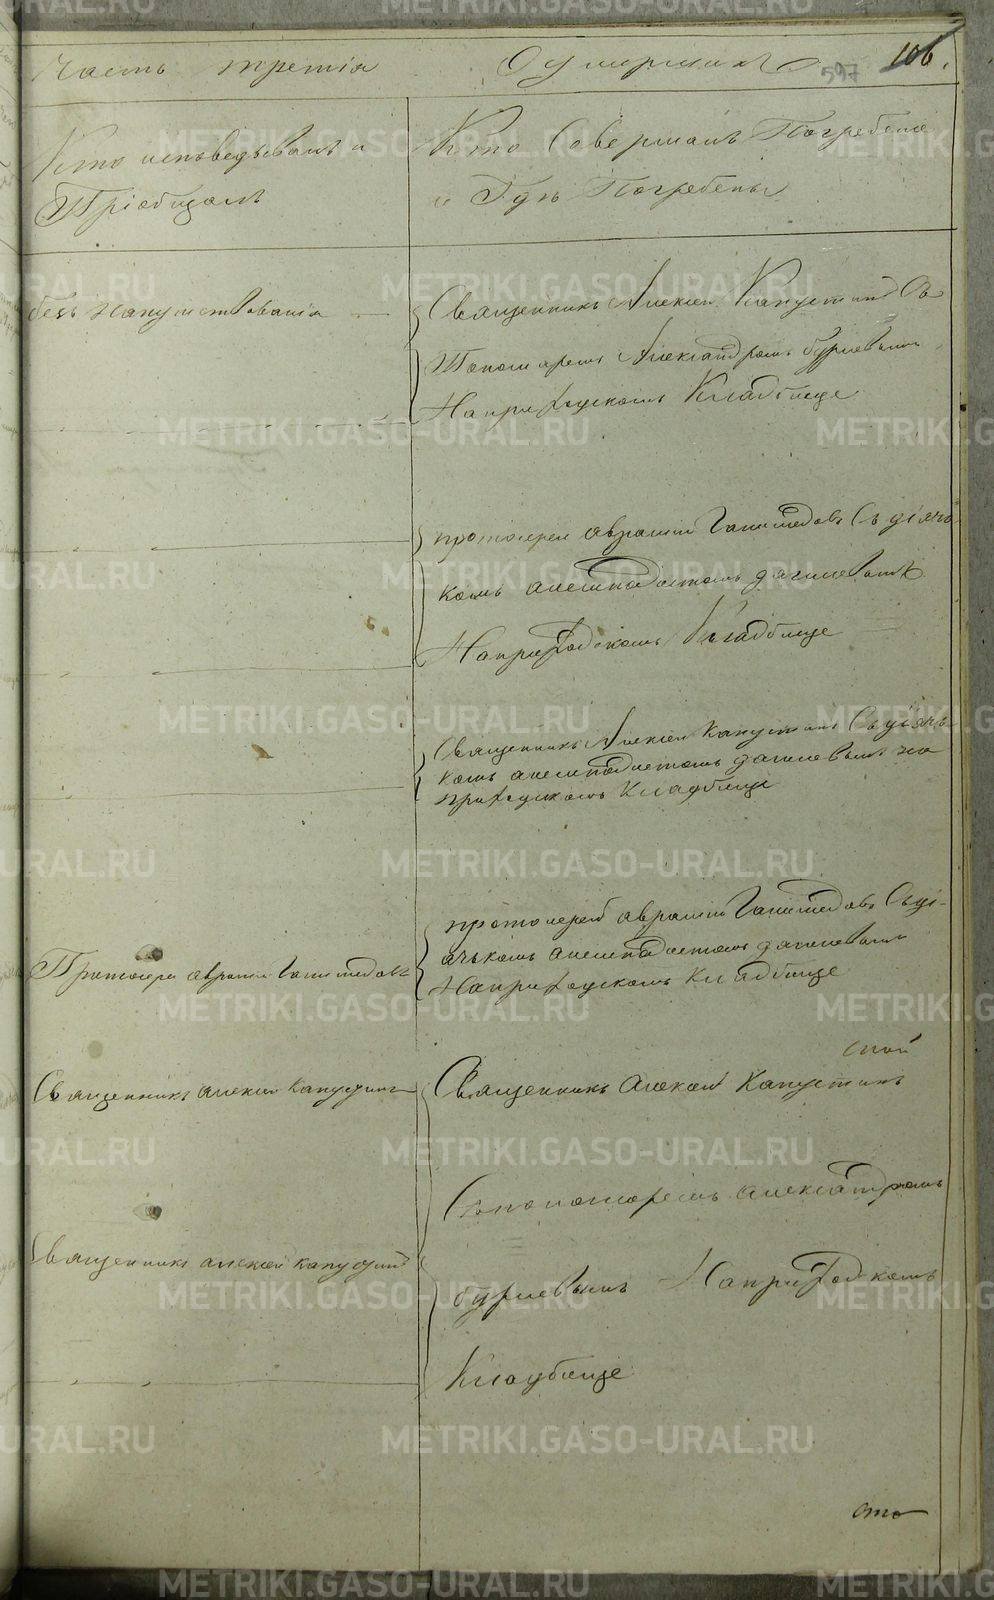 Часть третія О умершихъ 597 106.
Кто исповедывалъ и
Пріобщалъ
Кто Совершалъ Погребеніе
и Гдѣ Погребены
безъ напутствованія
Священникъ Алексей Капустинъ Съ
Пономаремъ Александромъ бурнѣвымъ
На приходскомъ Кладбище
протоиерей авраамій Ганимедовъ Съ діяч
комъ
На приходскомъ Кладбище
Священникъ Алексей Капустинъ Съ діячь
комъ на
приходскомъ Кладбище
Протоиерей авраамій Ганимедовъ
протоиерей авраамій Ганимедовъ Съ ді-
ячькомъ
На приходскомъ Кладбище
Священникъ алексей Капустинъ
Священникъ Алексей Капустинъ
Съ пономаремъ александромъ
Священникъ алексей капустинъ
бурнѣвымъ На приходскомъ
Кладбище
сто
METRIKI.GASO-URAL.RU